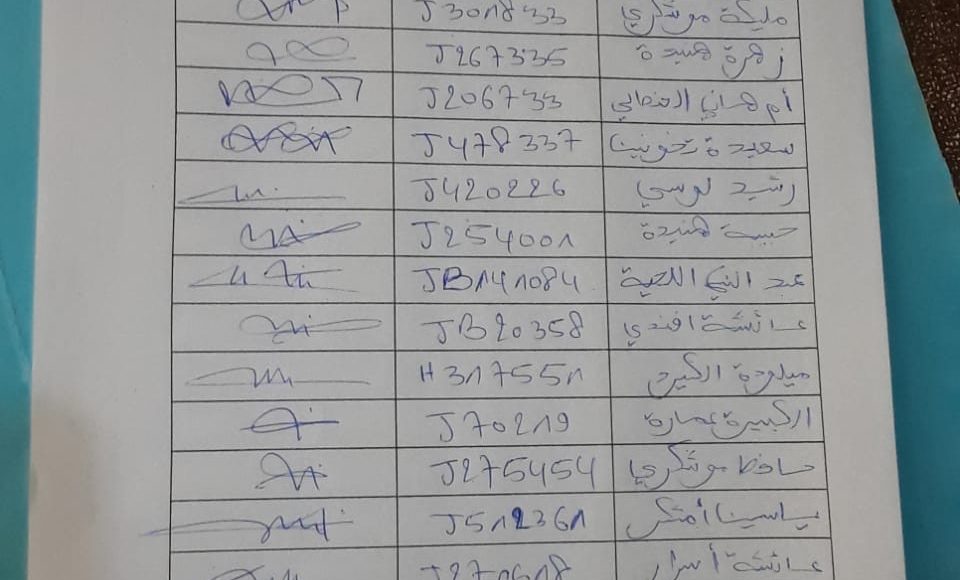 مليكة موتكري J301833
زهرة هنيدة J267335
أم هاني J206733
سعيدة J478337
رشيد لوسي J420226
حبيبة هنيدة J254001
عبد النبي اللحية JB141084
عائشة افندي JB20358
ميلودة الكيرح H317551
الكبيرة عمارة J70219
حافظ موتكري J275454
ياسين أمتكر J512361
عائشة أسرار J270618